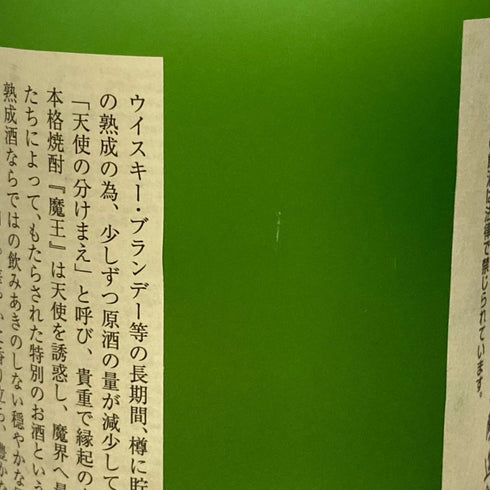 ウイスキー・ブランデー等の長期間、樽に貯
の熟成の為、少しずつ原酒の量が減少して
「天使の分けまえ」と呼び、貴重で縁起の
本格焼酎『魔王』は天使を誘惑し、魔界へ最
たちによって、もたらされた特別のお酒という
熟成酒ならではの飲みあきのしない穏やかな
は法律で禁じられています。